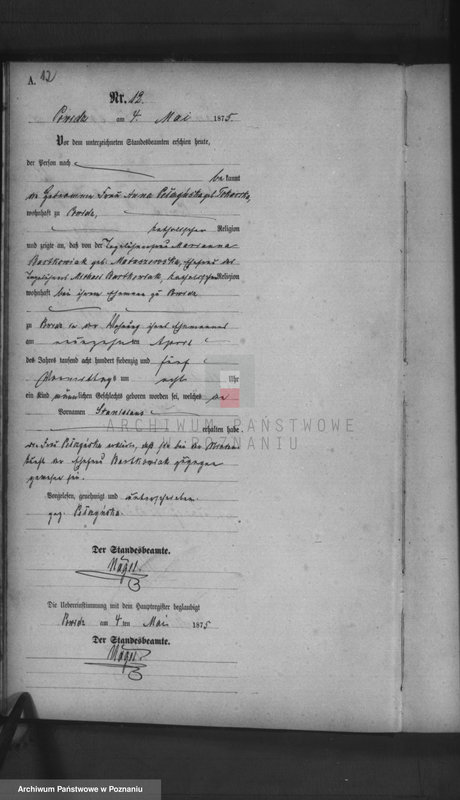 A. 12
Nr. 12.
am 4. Mai 1875.
Vor dem unterzeichneten Standesbeamten erschien heute,
der Person nach
be kannt
die Hebamme Frau Anna
wohnhaft zu
katholischer Religion
und zeigte an, daß von der Tagelöhnerfrau Marianna
Bartkowiak geb. Mataszewska, Ehefrau des
Tagelöhners Michael Bartkowiak, katholischer Religion
wohnhaft bei ihrem Ehemann zu
zu in der Wohnung ihres Ehemannes
am neunzehn ten April
des Jahres tausend acht hundert siebenzig und fünf
Vormittags um acht Uhr
ein Kind männlichen Geschlechts geboren worden sei, welches die
Vornamen Stanislaus
erhalten habe.
die Frau erklärte, daß sie bei der Nieder-
kunft der Ehefrau Bartkowiak zugegen
gewesen sei.
Vorgelesen, genehmigt und unterschrieben
gez.
Der Standesbeamte.
Nägel.
Die Uebereinstimmung mit dem Hauptregister beglaubigt
am 4 ten Mai 1875
Der Standesbeamte.
Nägel.
ARCHIWUM PAŃSTWOWE
POZNANIU
Archiwum Państwowe w Poznaniu